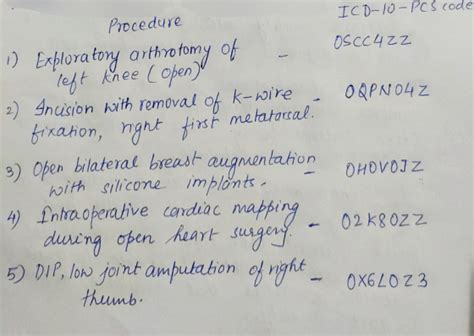 Procedure
ICD-10-PCS code
1) Exploratory arthrotomy of
left knee (open) - OSCC4ZZ
2) Incision with removal of k-wire - OQPNO4Z
fixation, right first metatarsal.
3) Open bilateral breast augmentation - OHOVOJZ
with silicone implants.
4) Intraoperative cardiac mapping - O2K8OZZ
during open heart surgery.
5) DIP, low joint amputation of right - OX6LOZ3
thumb.